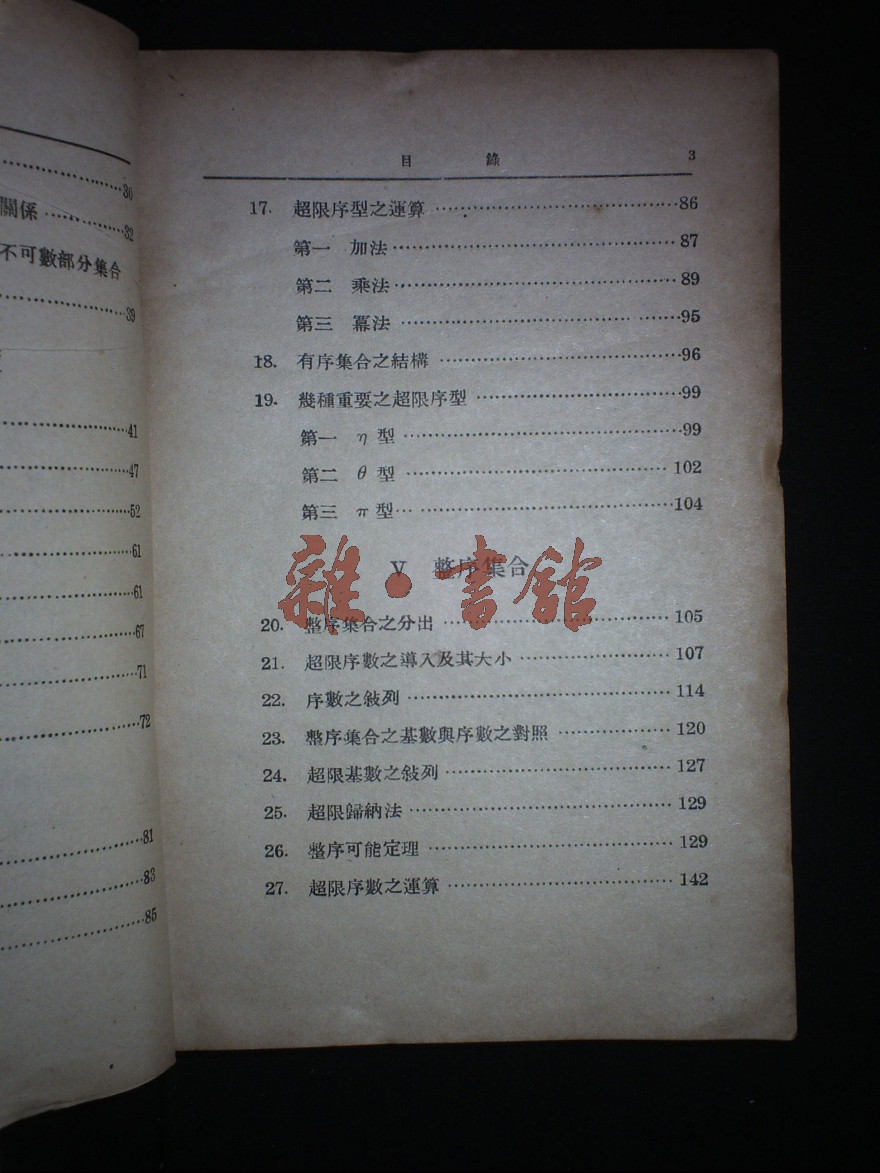 30
關係 ............ 32
不可數部分集合
39
41
47
52
61
61
67
71
72
81
83
85
目 錄 3
17. 超限序型之運算 ............ 86
第一 加法 ............ 87
第二 乘法 ............ 89
第三 冪法 ............ 95
18. 有序集合之結構 ............ 96
19. 幾種重要之超限序型 ............ 99
第一 η 型 ............ 99
第二 θ 型 ............ 102
第三 π 型 ............ 104
V 整序集合
雜·書館
20. 整序集合之分出 ............ 105
21. 超限序數之導入及其大小 ............ 107
22. 序數之敍列 ............ 114
23. 整序集合之基數與序數之對照 ............ 120
24. 超限基數之敍列 ............ 127
25. 超限歸納法 ............ 129
26. 整序可能定理 ............ 129
27. 超限序數之運算 ............ 142